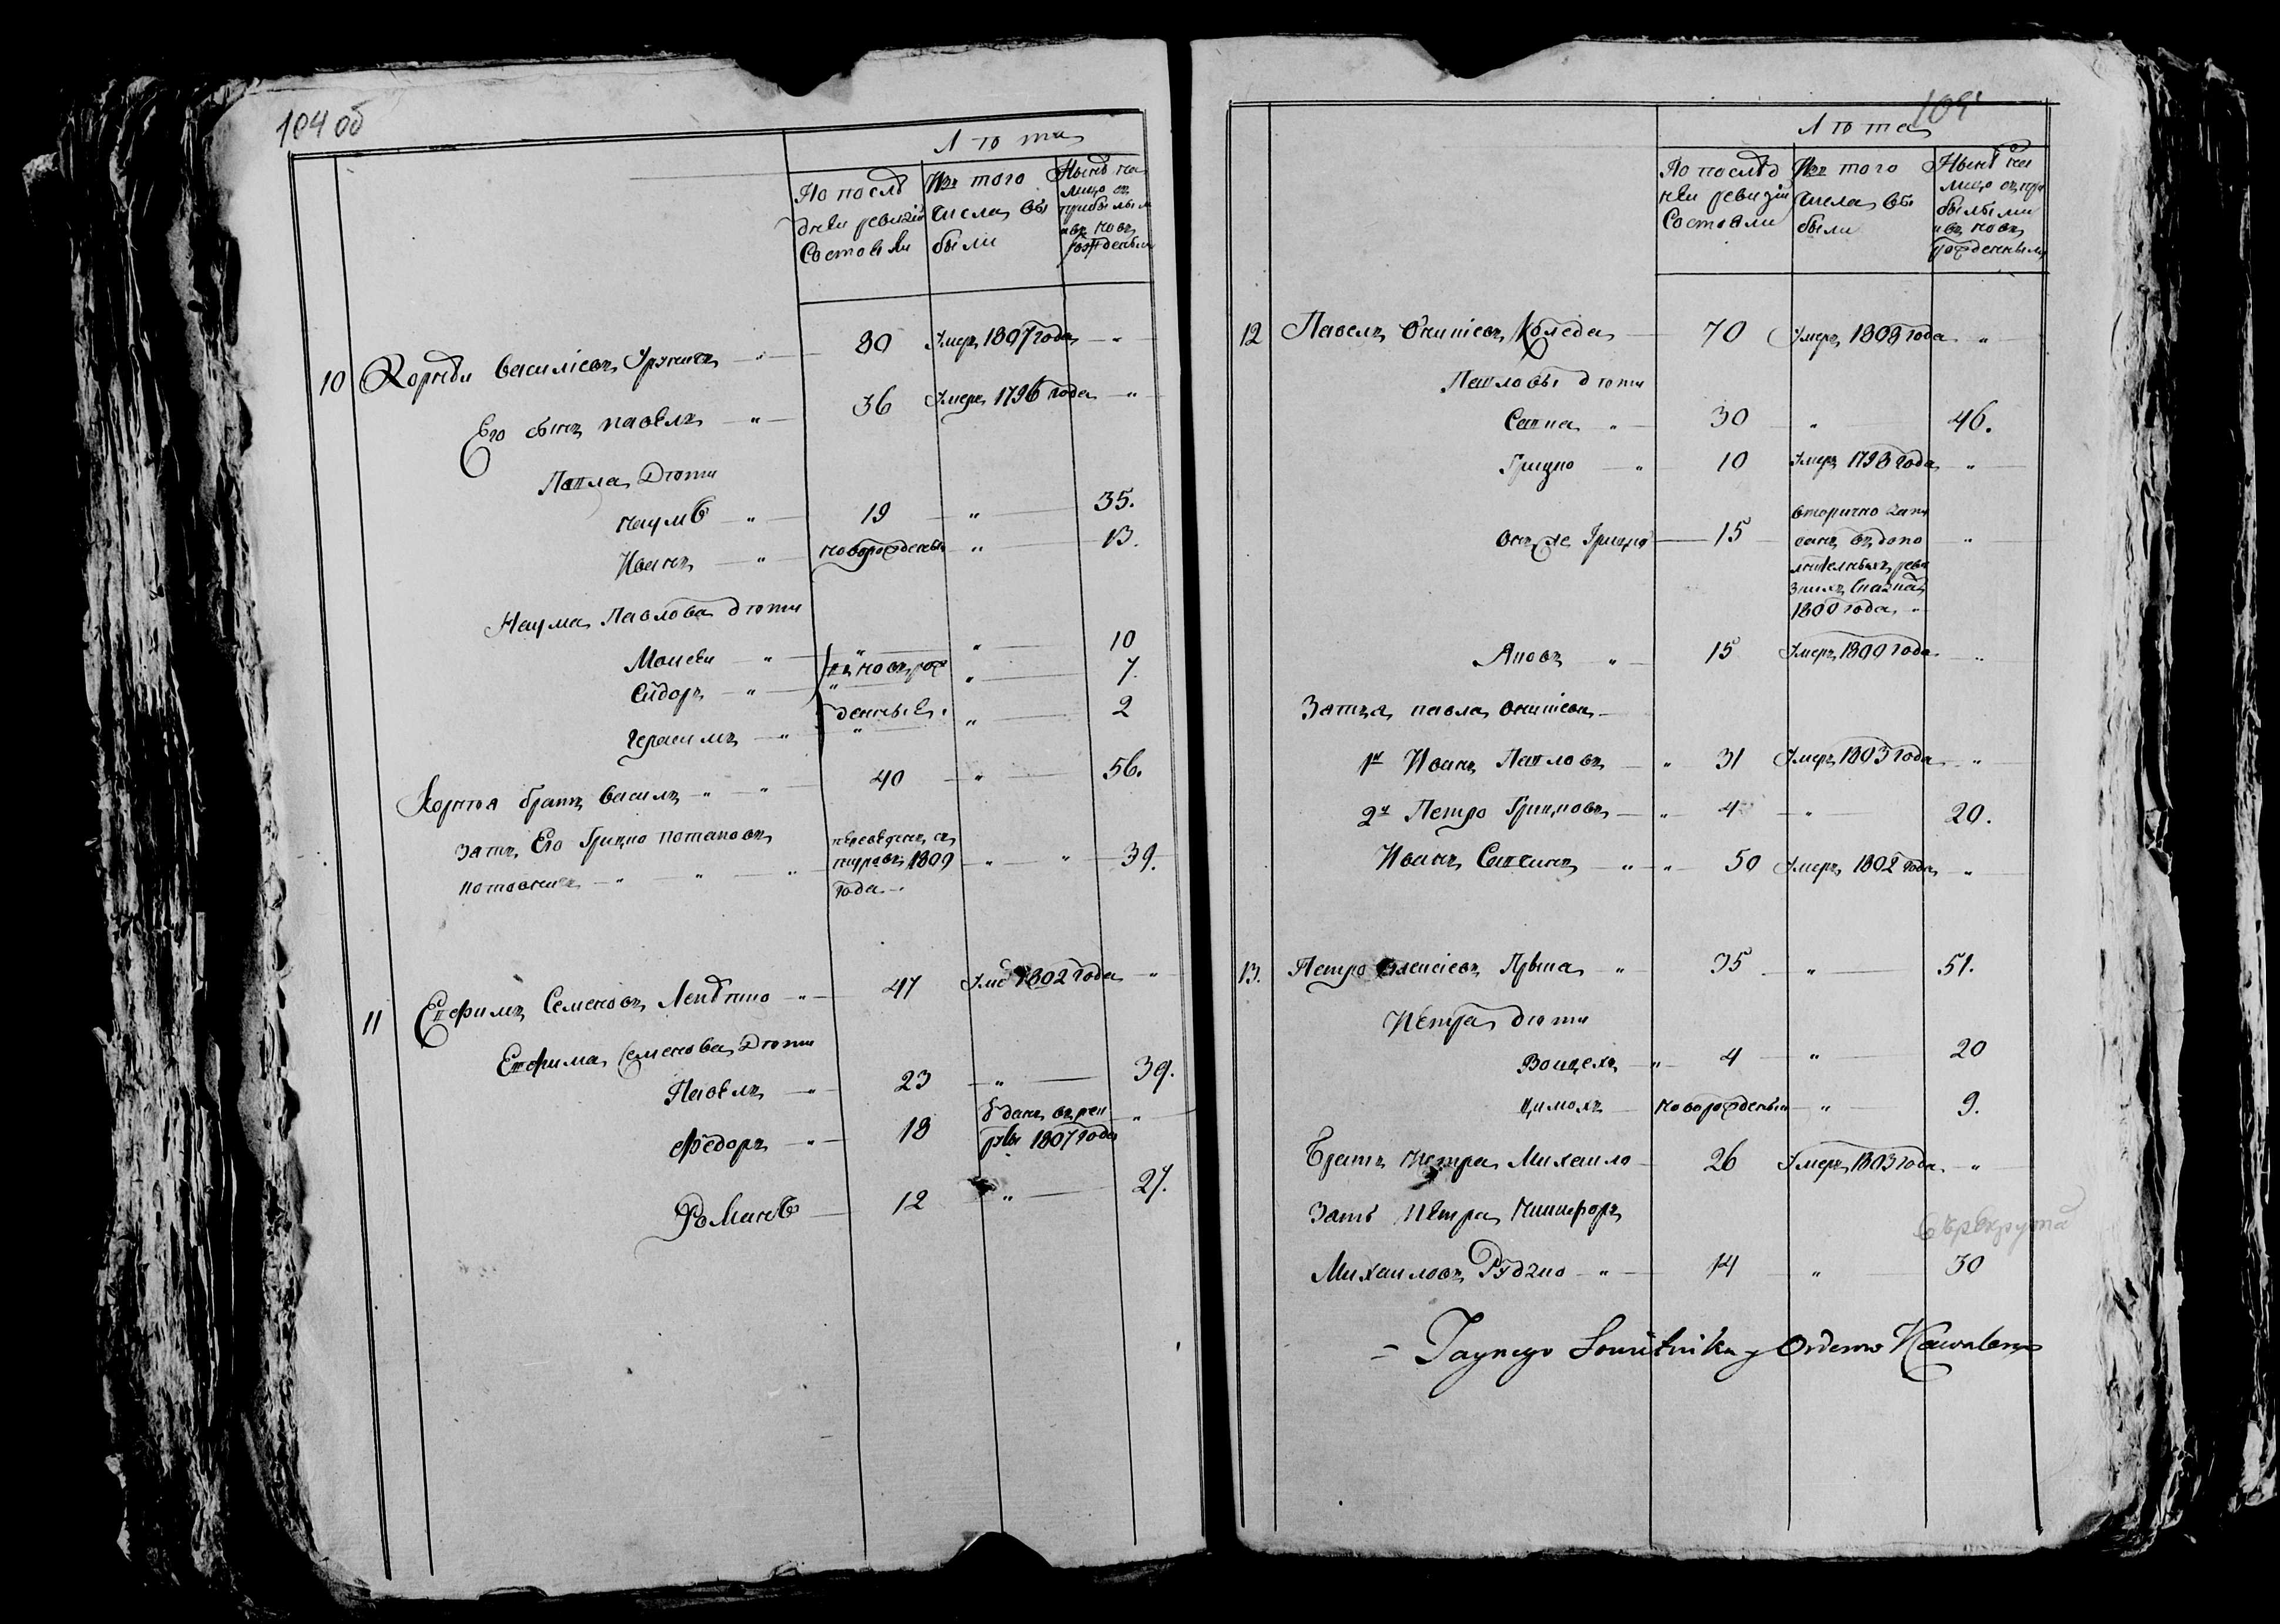 104 об
Лѣта
По послѣ
дней ревизіи
Состояли
Изъ того
числа вы
были
Нынѣ на
лицо съ
прибылым
и въ новъ
рожденным
10 Корнѣй Василіевъ — 80 Умеръ 1807 года — „
Его сынъ Павелъ „ 36 Умеръ 1796 года — „
Павла Дѣти
Наумъ „ 19 „ 35.
Иванъ „ новорожденный „ 13.
Наума Павлова дѣти
Моисей „ „ 10
въ новъ рож
Сидоръ „ „ 7.
денные
Герасимъ „ „ 2
Корнѣя братъ Василь „ „ 40 „ 56.
Зять Его Грицко Потаповъ переведенъ съ
1809 „ „ 39.
года
11 Ефимъ Семеновъ — 47 Уме 1802 года „
Ефима Семенова Дѣти
Павелъ „ 23 „ 39.
Федоръ „ 18 Отданъ въ рек
руты 1807 года „
Романъ 12 „ 27.
109
Лѣта
По послѣд
ней ревизіи
Состояли
Изъ того
числа вы
были
Нынѣ на
лицо съ при
былыми
и въ новъ
рожденными
12 Павелъ Коледа 70 Умеръ 1808 года „
Павловы дѣти
Сапка „ 30 „ 46.
Грицко „ 10 Умеръ 1798 года „
вторично запи
онъ же Грицко 15 санъ въ допо „
лнительныхъ реви
зияхъ
1800 года „
Яковъ „ 15 Умеръ 1800 года „
Зятья Павла
1й Иванъ Павловъ „ 31 Умеръ 1803 года „
2й Петро Грицковъ „ 4 „ 20.
Иванъ „ „ 50 Умеръ 1802 года „
13. Петро Алексіевъ „ 35 „ 51.
Петра дѣти
Войцехъ „ 4 „ 20
Цимохъ новорожденный „ 9.
Братъ Петра Михайло 26 Умеръ 1803 года „
Зять Петра Никифоръ
Михайловъ Рудзко „ 14 „ 30
= Taynego Sowietnika y Orderow Kawalera